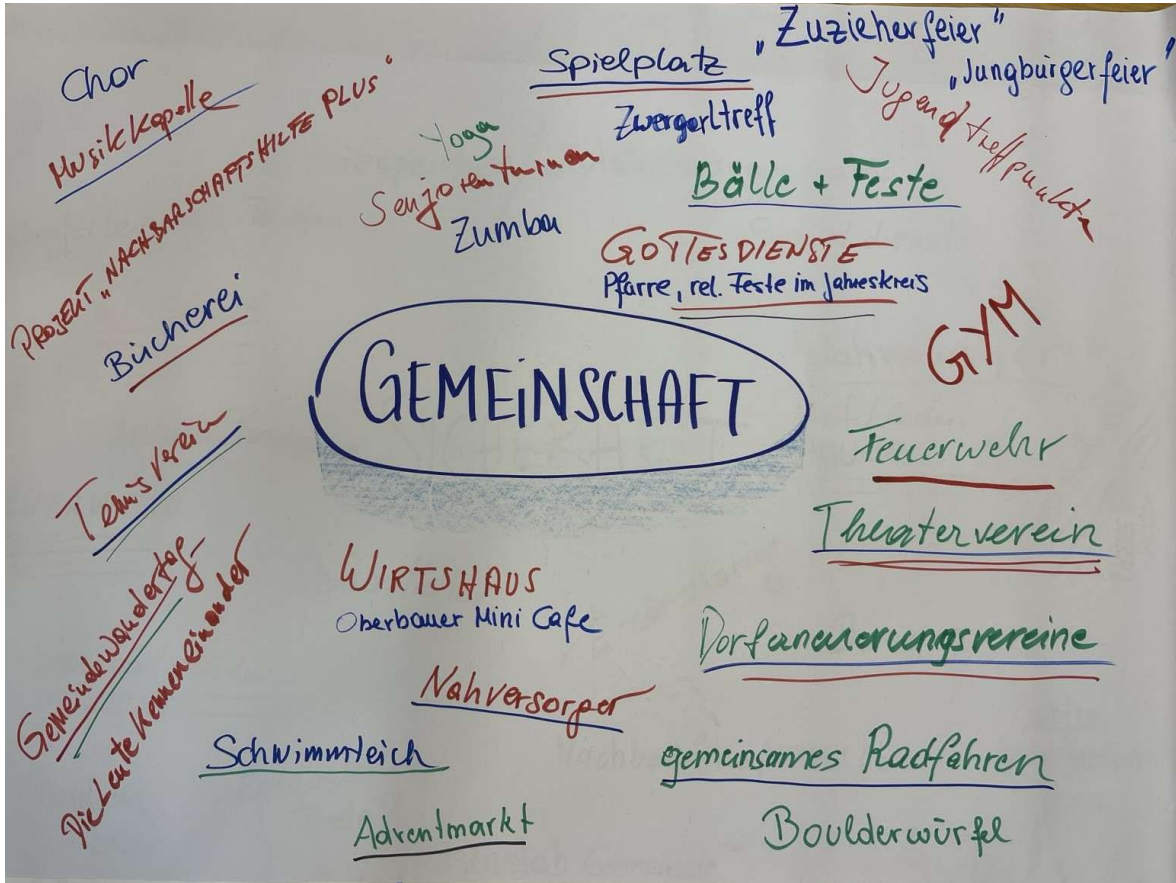 Chor
Musikkapelle
PROJEKT „NACHBARSCHAFTSHILFE PLUS"
Bücherei
Tennisverein
Gemeindewandertag
Die Leute kennen einander
Yoga
Seniorenturnen
Zumba
Spielplatz
Zwergerltreff
„Zuzieherfeier"
„Jungbürgerfeier"
Jugendtreffpunkte
Bälle + Feste
GOTTESDIENSTE
Pfarre, rel. Feste im Jahreskreis
GYM
GEMEINSCHAFT
Feuerwehr
Theaterverein
WIRTSHAUS
Oberbauer Mini Cafe
Dorferneuerungsvereine
Nahversorger
Schwimmteich
gemeinsames Radfahren
Adventmarkt
Boulderwürfel